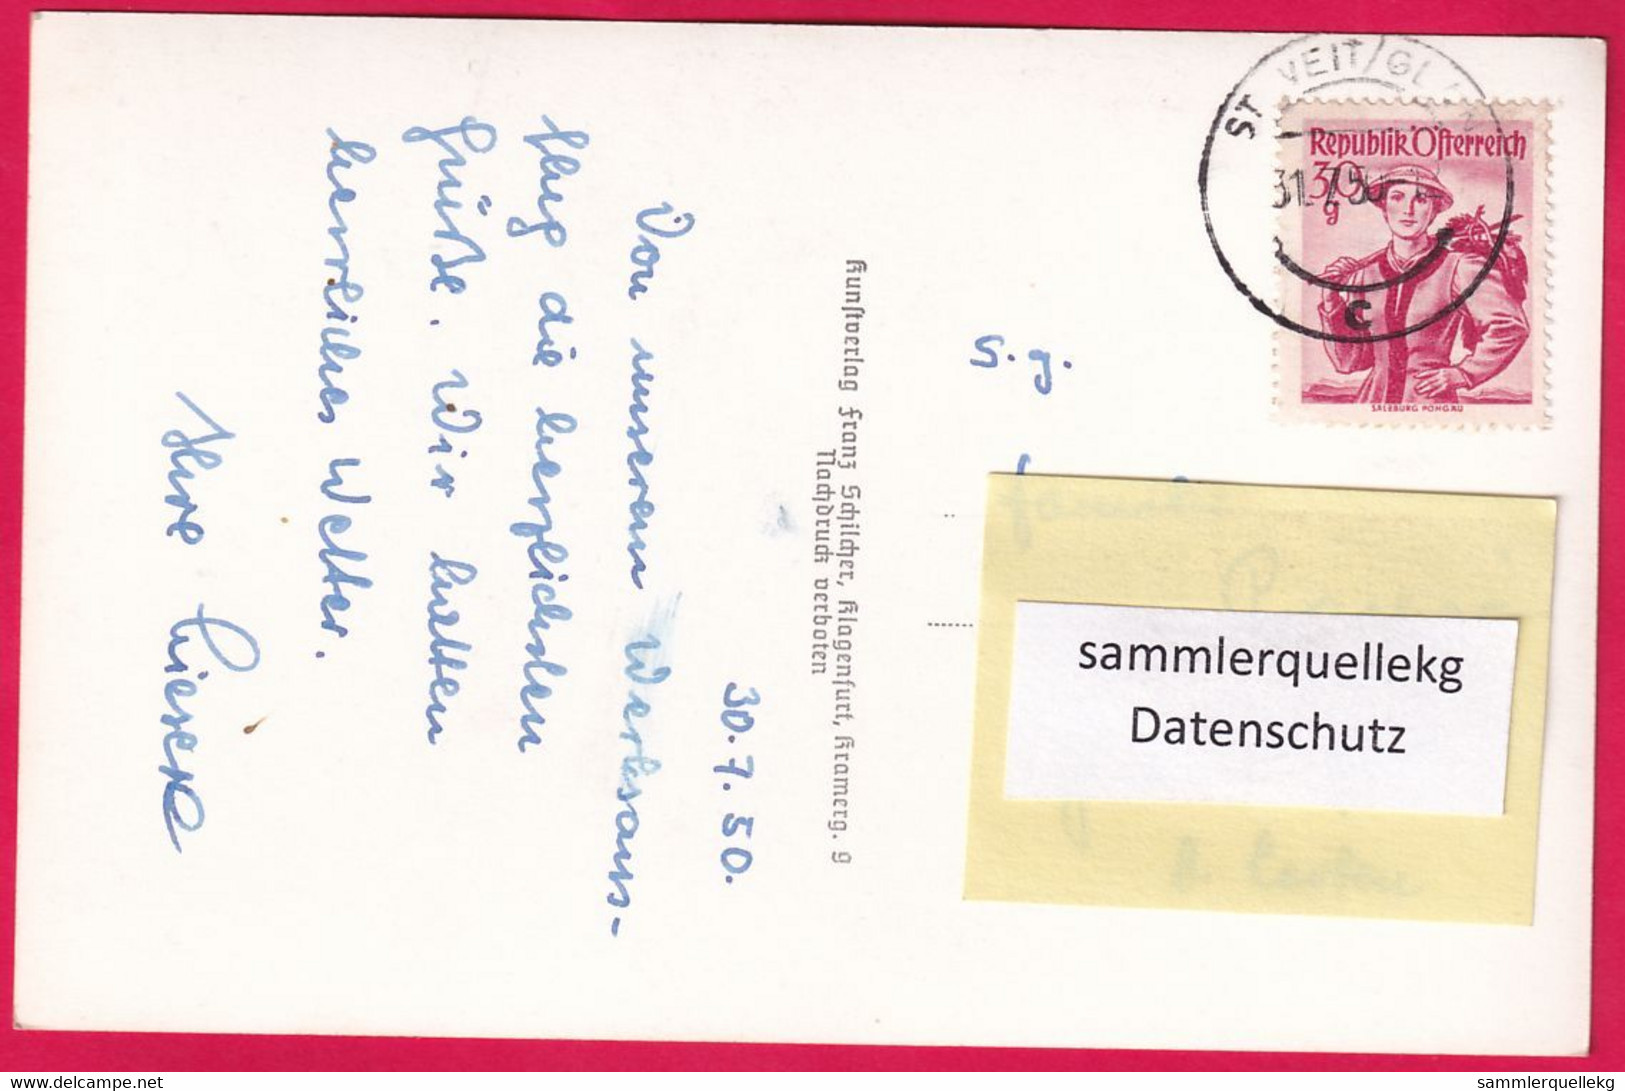 30.7.50.
Von unserem Werksaus-
flug die herzlichsten
Grüße. Wir hatten
herrliches Wetter.
Ihre
Kunstverlag Franz Schilcher, Klagenfurt, Kramerg. 9
Nachdruck verboten
ST. VEIT/GLAN
31.7.50
C
Republik Österreich
30
g
SALZBURG PONGAU
Familie
sammlerquellekg
Datenschutz
www.delcampe.net
sammlerquellekg